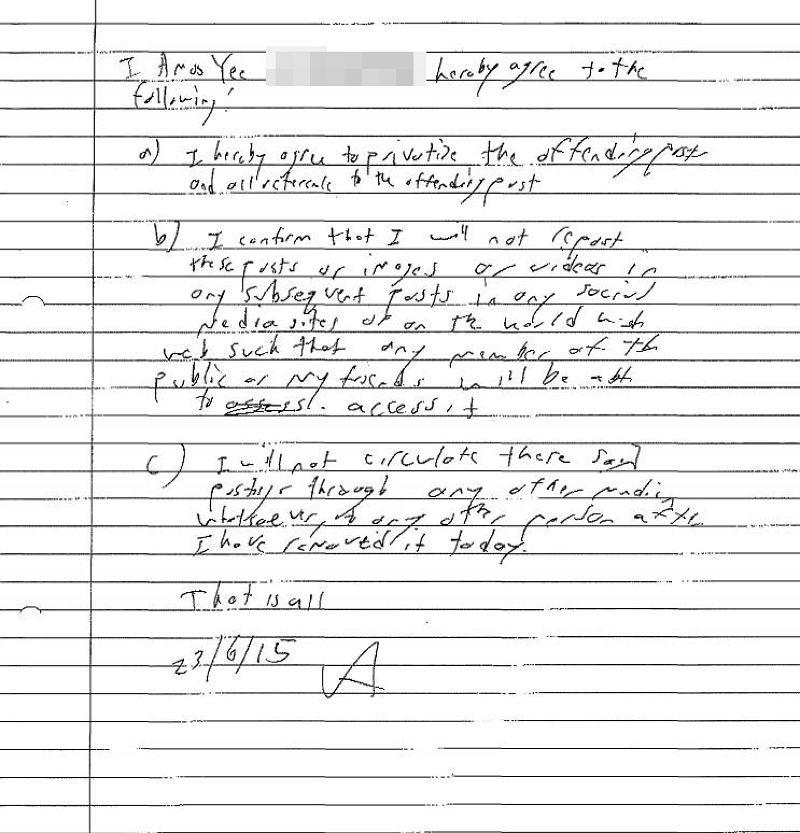 I Amos Yee hereby agree to the
following:
a) I hereby agree to privatize the offending post
and all referrals to the offending post
b) I confirm that I will not repost
these posts or images or videos in
any subsequent posts in any social
media sites or on the world wide
web such that any member of the
public or my friends will be able
to access. access it
c) I will not circulate these said
postings through any other media
whatsoever, to any other person after
I have removed it today.
That is all
23/6/15 A